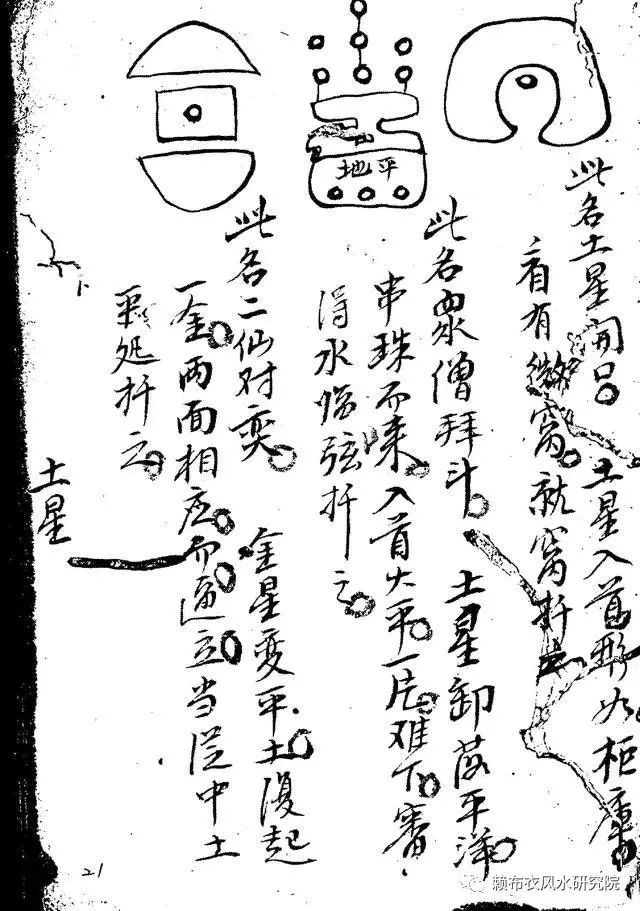 此名土星開口 土星入首形如柜庫
看有微窩就窩扦之
地平
此名眾僧拜斗 土星卸落平洋
串珠而来入首大平一片难下審
得水临弦扦之
此名二仙对奕 金星变平土復起
一金两面相应而逼立当従中土
平処扦之
土星
21
赖布衣风水研究院